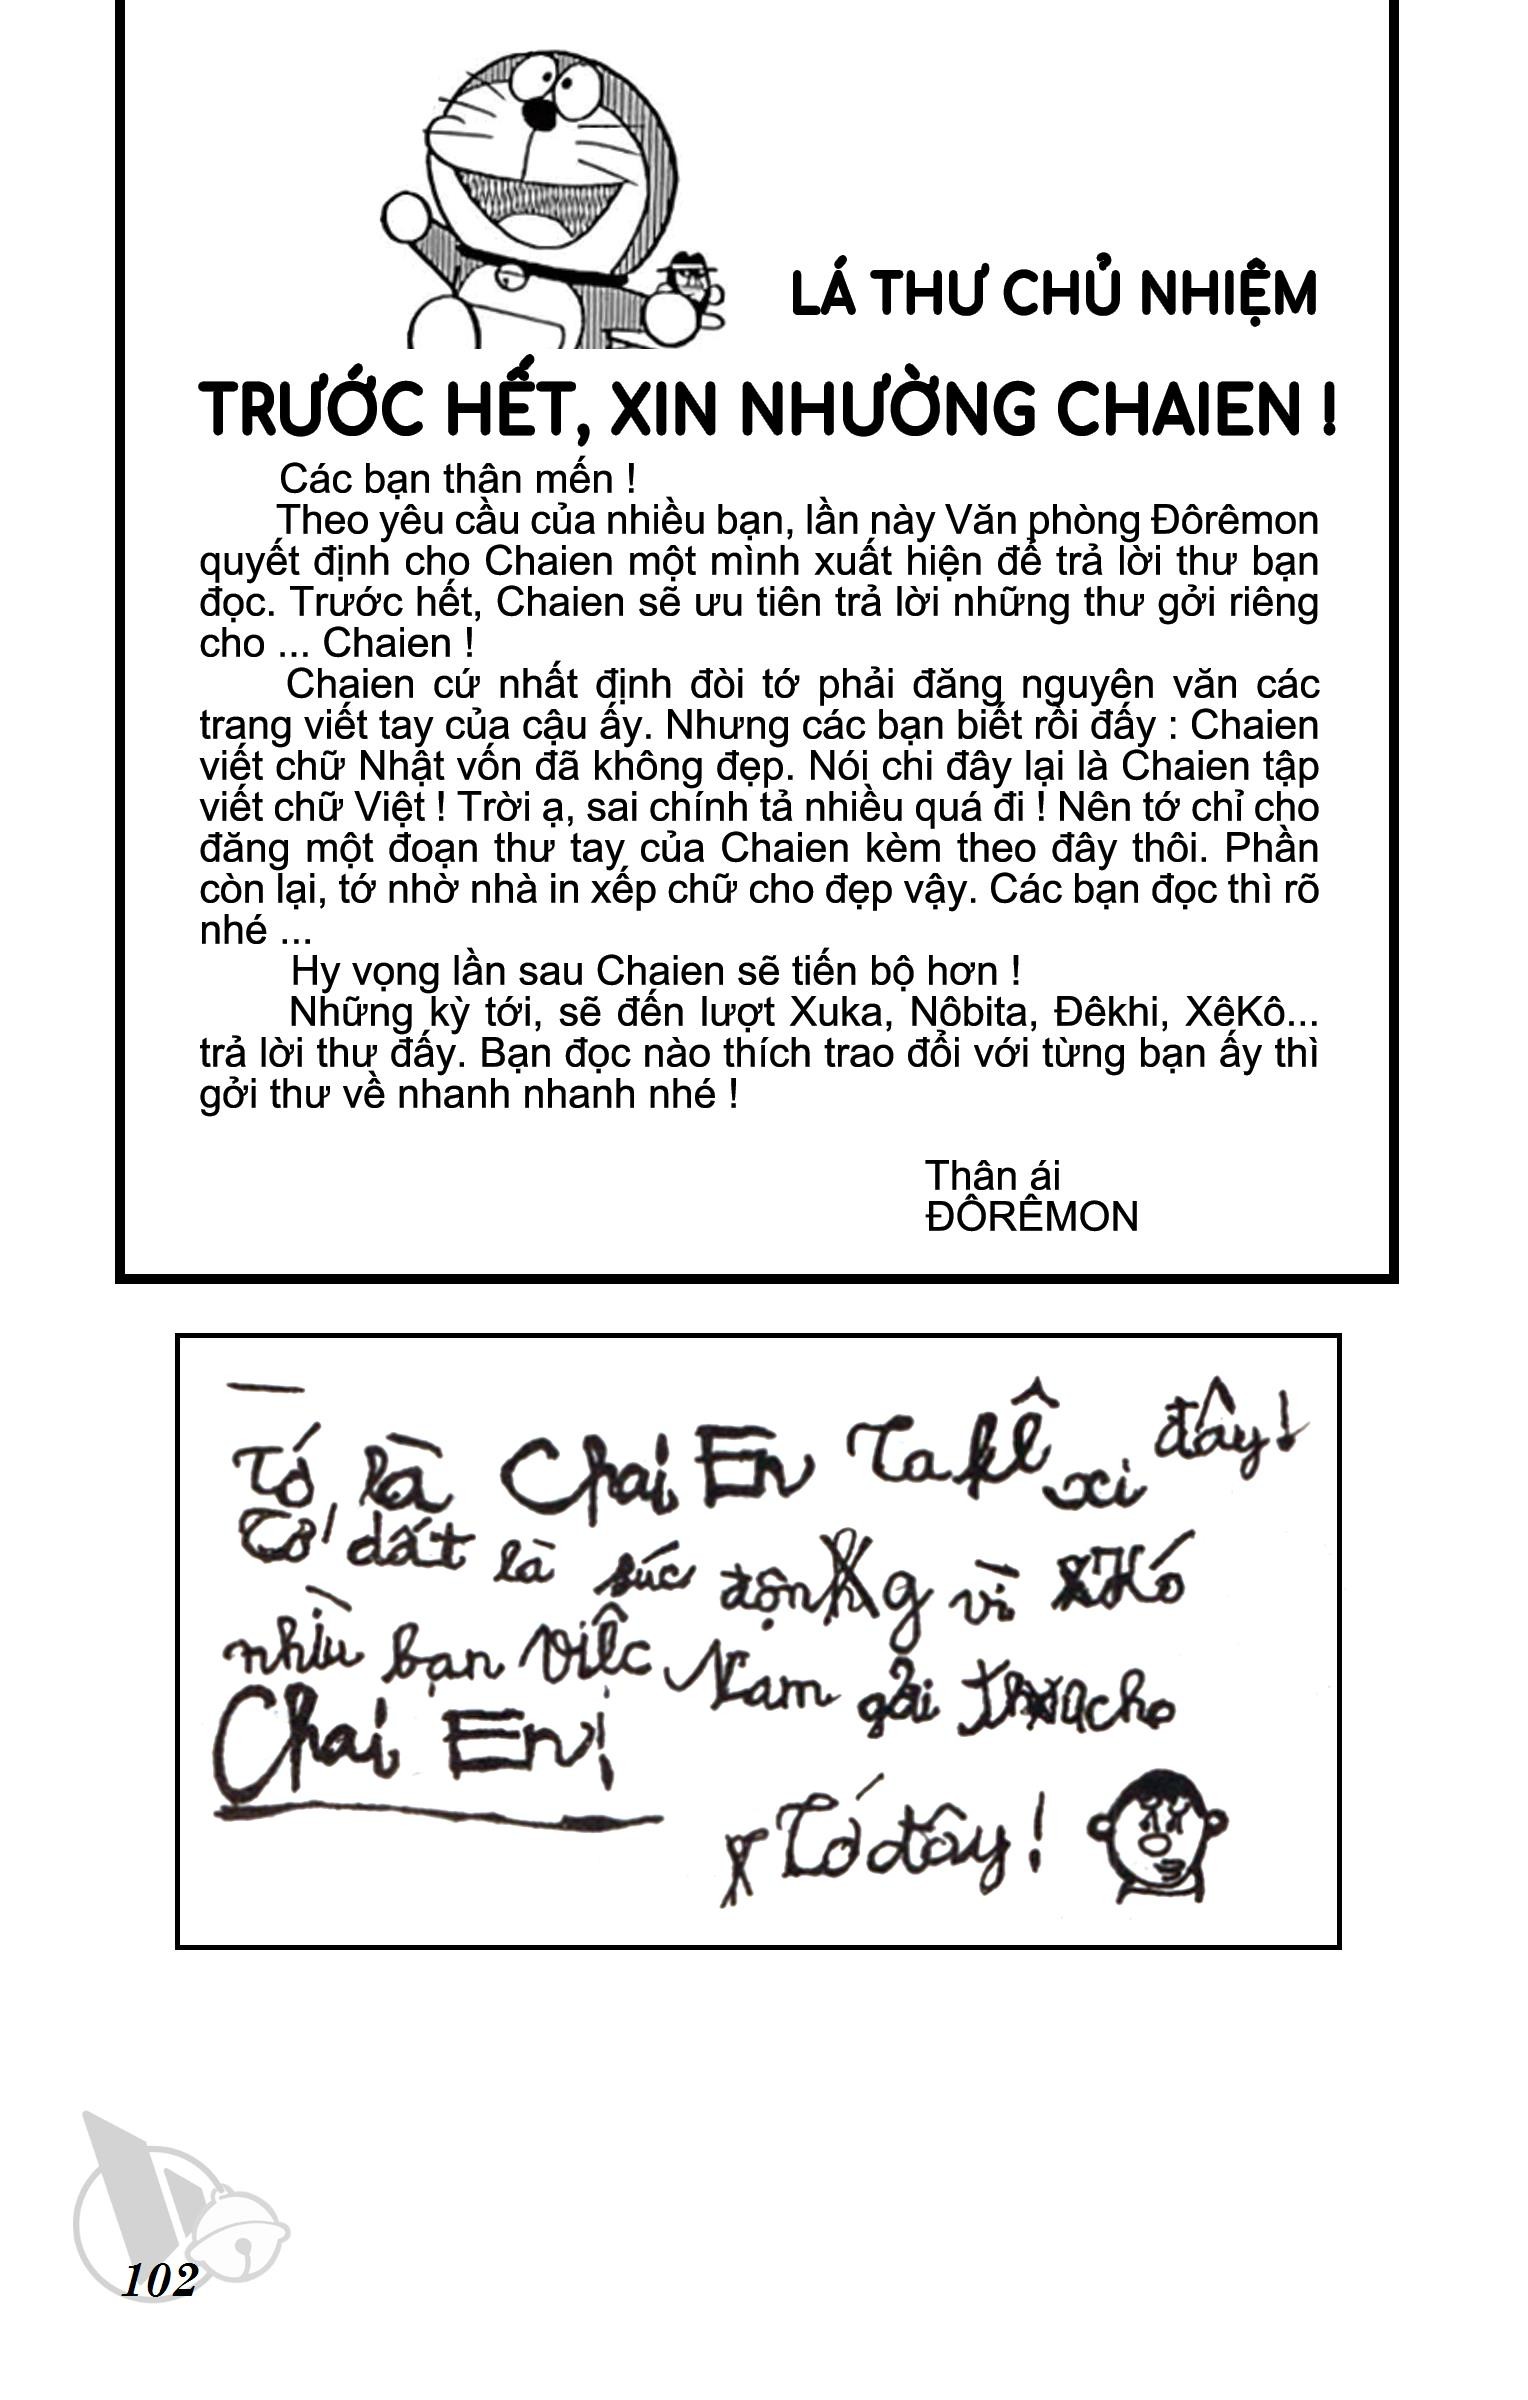 LÁ THƯ CHỦ NHIỆM
TRƯỚC HẾT, XIN NHƯỜNG CHAIEN !
Các bạn thân mến !
Theo yêu cầu của nhiều bạn, lần này Văn phòng Đôrêmon
quyết định cho Chaien một mình xuất hiện để trả lời thư bạn
đọc. Trước hết, Chaien sẽ ưu tiên trả lời những thư gởi riêng
cho ... Chaien !
Chaien cứ nhất định đòi tớ phải đăng nguyên văn các
trang viết tay của cậu ấy. Nhưng các bạn biết rồi đấy : Chaien
viết chữ Nhật vốn đã không đẹp. Nói chi đây lại là Chaien tập
viết chữ Việt ! Trời ạ, sai chính tả nhiều quá đi ! Nên tớ chỉ cho
đăng một đoạn thư tay của Chaien kèm theo đây thôi. Phần
còn lại, tớ nhờ nhà in xếp chữ cho đẹp vậy. Các bạn đọc thì rõ
nhé ...
Hy vọng lần sau Chaien sẽ tiến bộ hơn !
Những kỳ tới, sẽ đến lượt Xuka, Nôbita, Đêkhi, XêKô...
trả lời thư đấy. Bạn đọc nào thích trao đổi với từng bạn ấy thì
gởi thư về nhanh nhanh nhé !
Thân ái
ĐÔRÊMON
Tớ là Chai En Ta kê xi đây!
Tớ dất là súc động vì Kó
nhìu bạn Việc Nam gởi cho
Chai En!
Tớ đây!
102